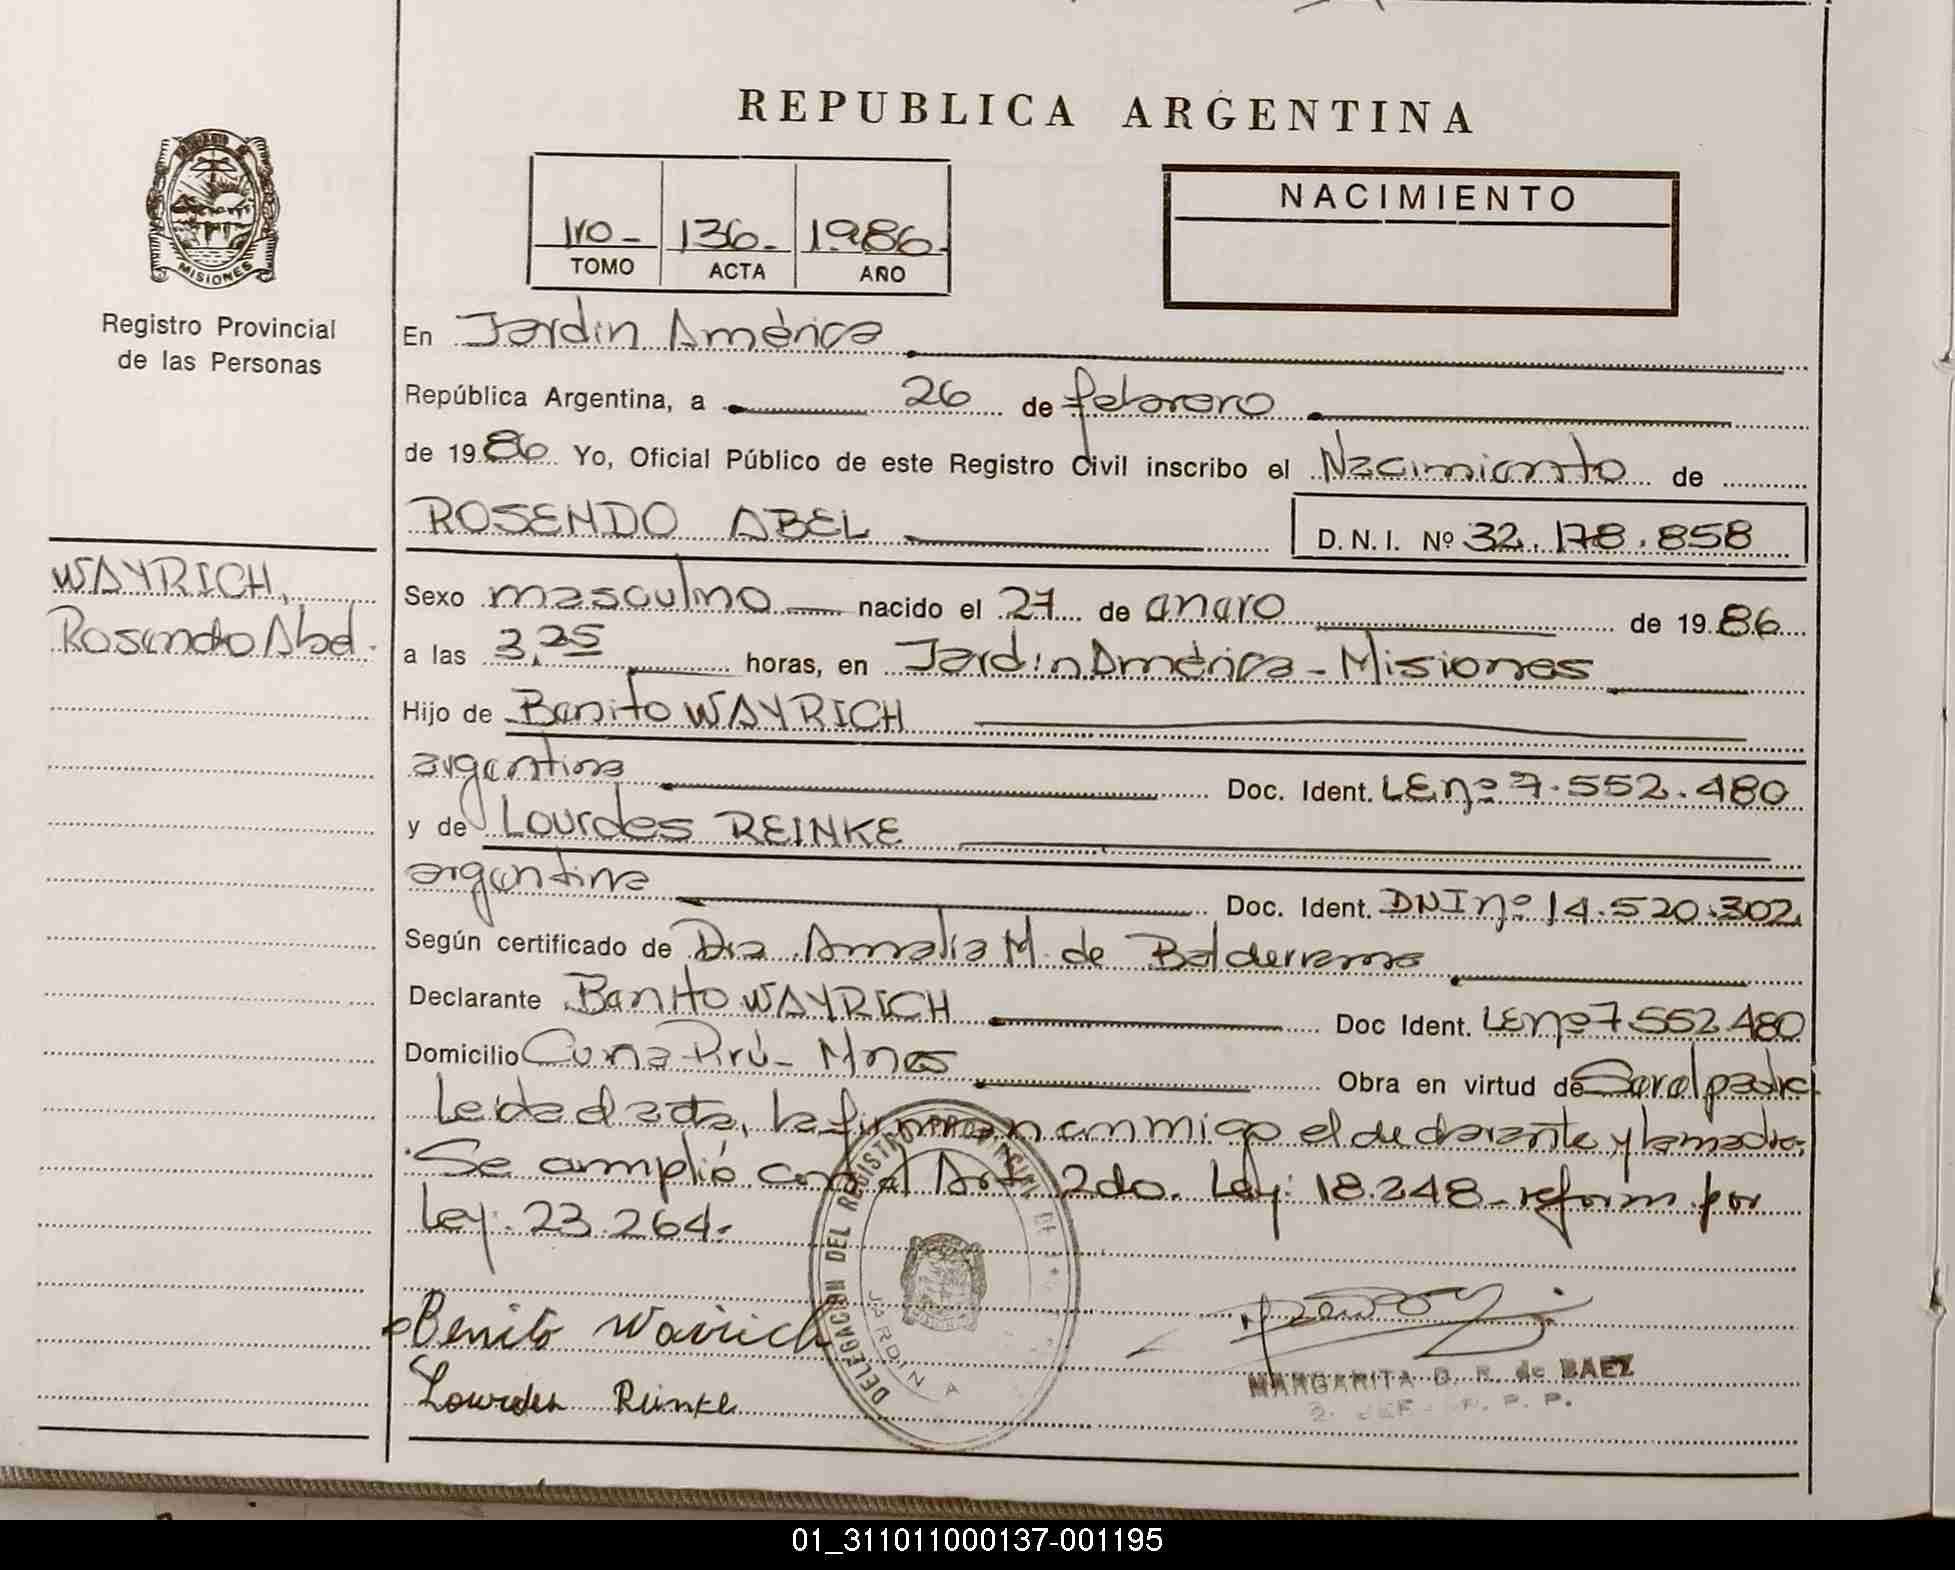 REPUBLICA ARGENTINA
1ro - 136 - 1.986 -
TOMO ACTA AÑO
NACIMIENTO
MISIONES
Registro Provincial
de las Personas
En Jardín América
República Argentina, a 26 de febrero
de 19 86 Yo, Oficial Público de este Registro Civil inscribo el Nacimiento de
ROSENDO ABEL D. N. I. Nº 32.178.858
WAYRICH,
Rosendo Abel.
Sexo masculino nacido el 27 de enero de 19 86
a las 3,25 horas, en Jardín América - Misiones
Hijo de Benito WAYRICH
argentina Doc. Ident. LE nº 7.552.480
y de Lourdes REINKE
argentina Doc. Ident. DNI nº 14.520.302
Según certificado de Dra. Amalia M. de Balderrama
Declarante Benito WAYRICH Doc Ident. LE nº 7.552.480
Domicilio Cuña Pirú - Mnes Obra en virtud de Ser el padre
Leída el acta, la firman conmigo el declarante y la madre.
Se amplió conf. al Art. 2do. Ley: 18.248 - reform. por
Ley: 23.264.
DELEGACION DEL REGISTRO PROVINCIAL DE
JARDIN A
Benito Wairich
Lourdes Reinke
MARGARITA D. R. de BAEZ
R. P. P.
01_311011000137-001195